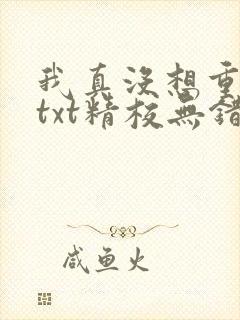 我真没想重
txt精校無錯
咸鱼火